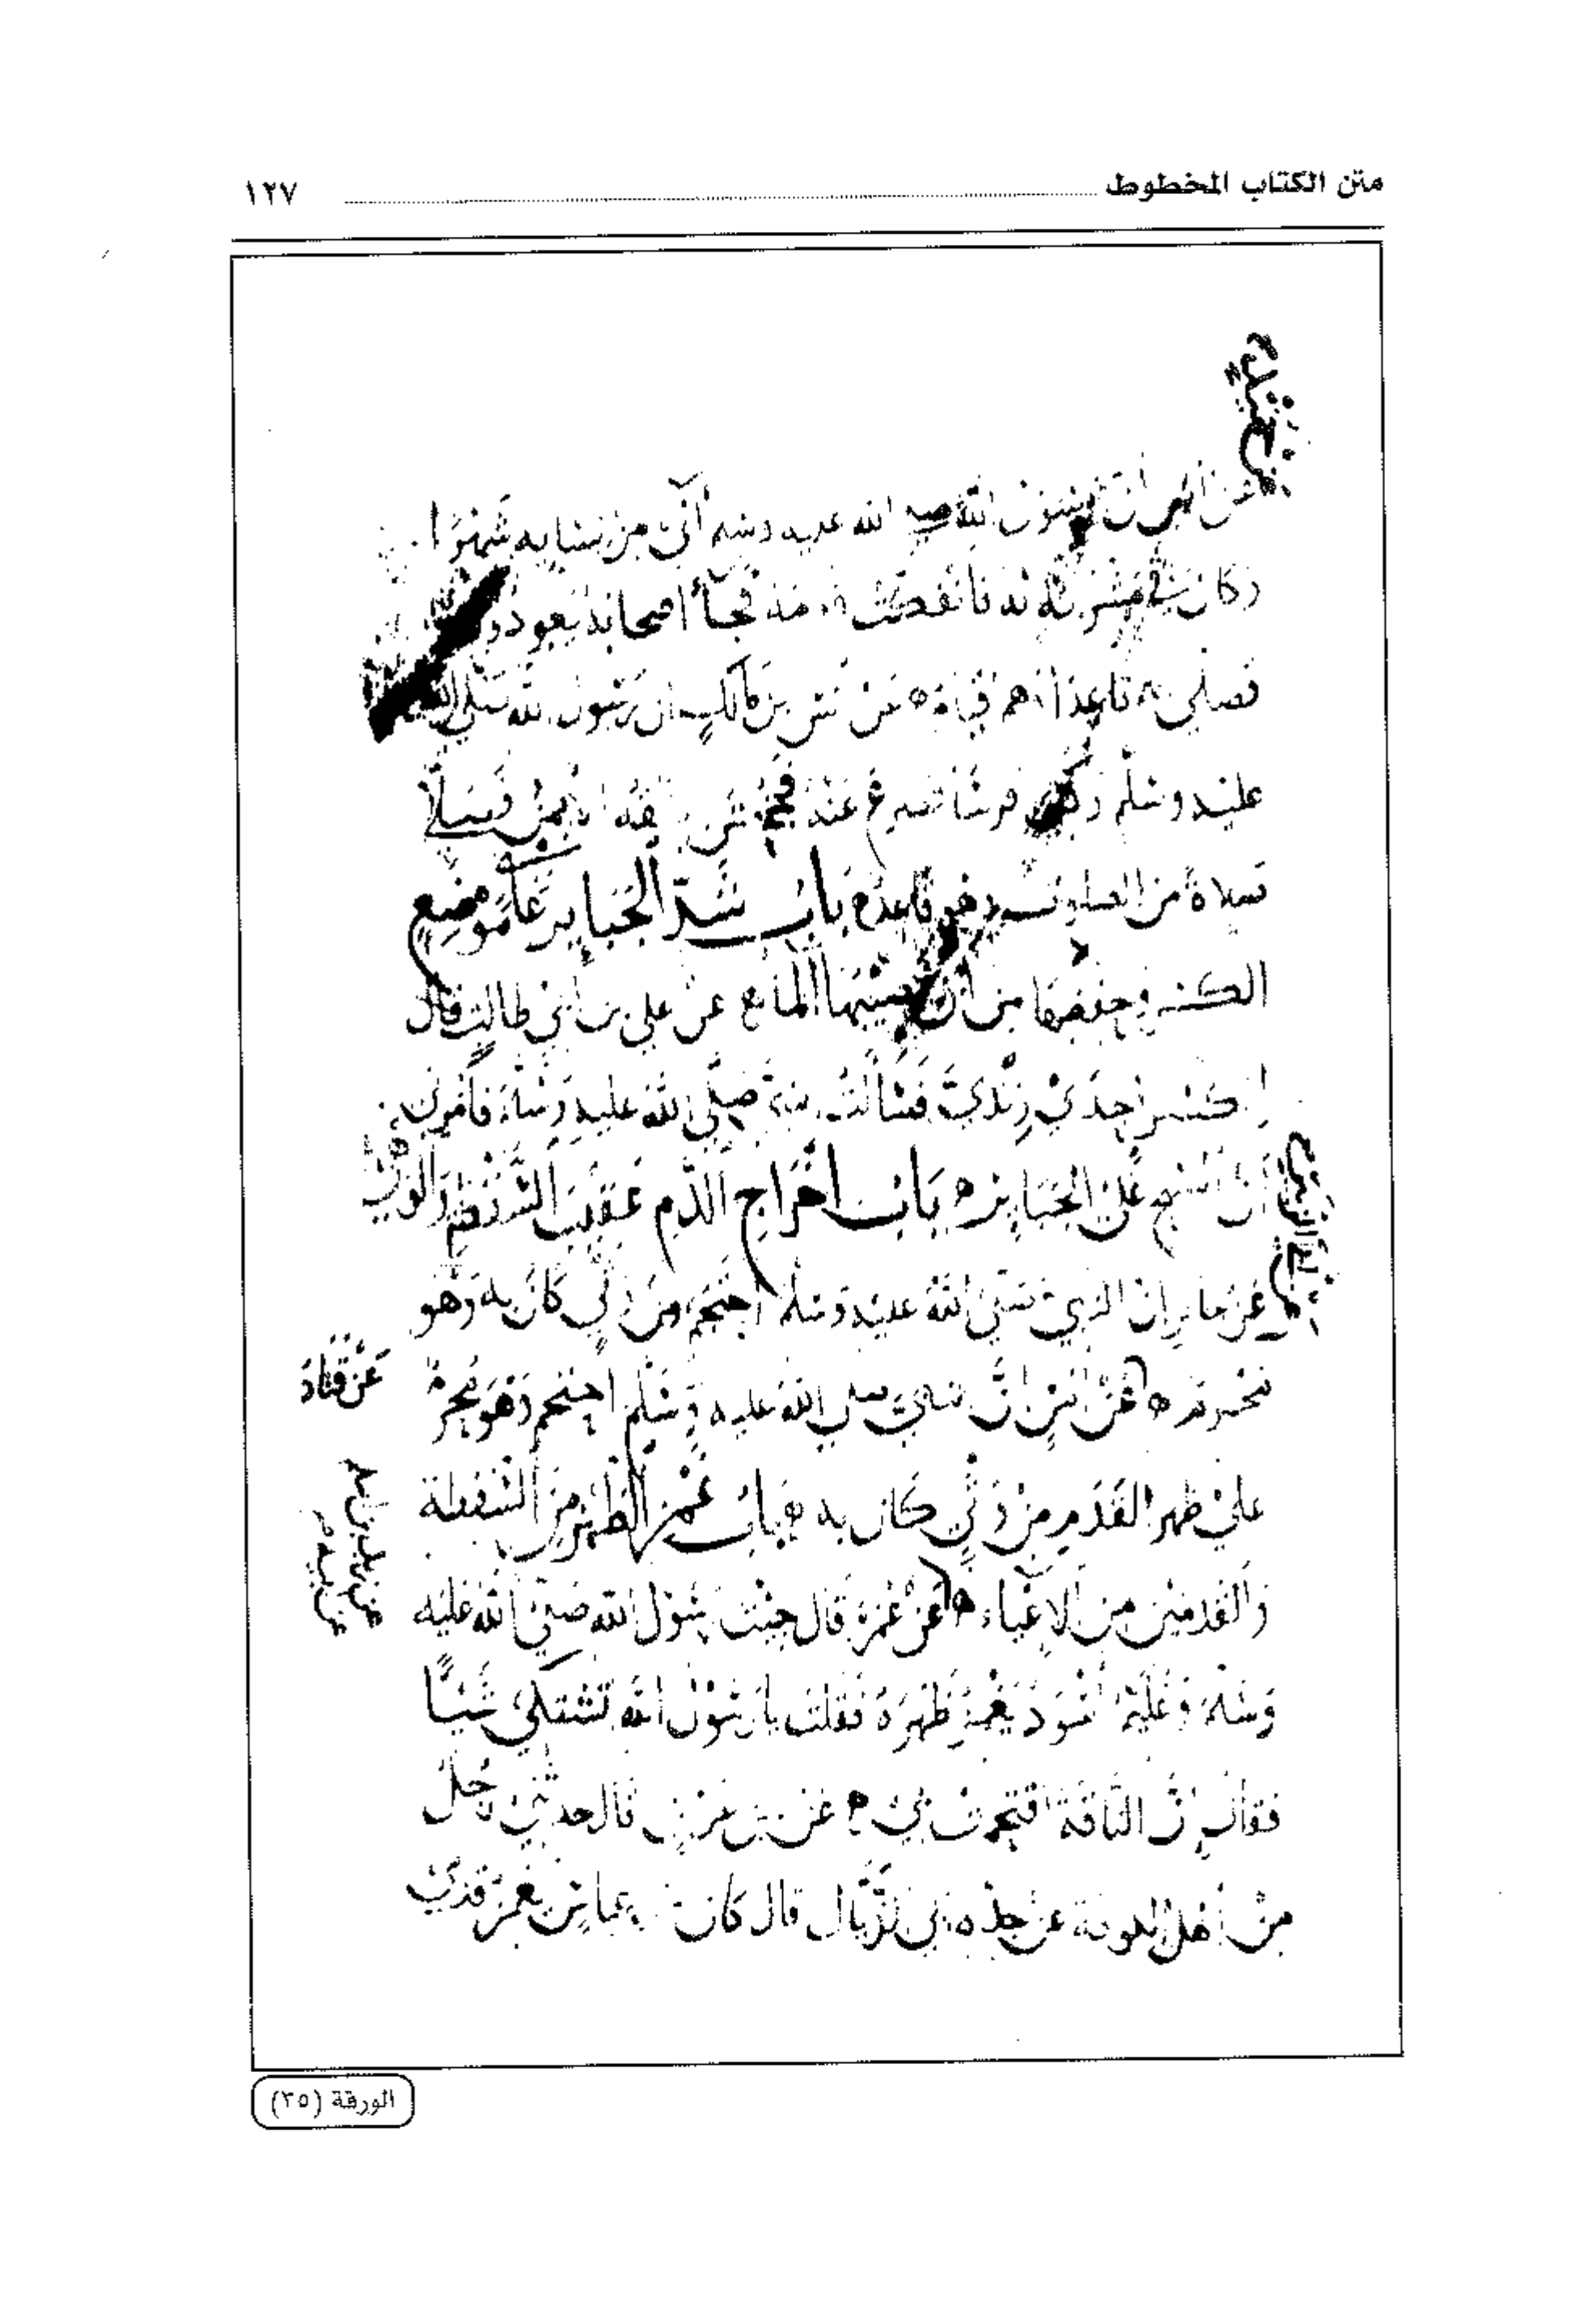 متن الكتاب المخطوط ١٢٧
عن أنس أن رسول الله صلى الله عليه وسلم آلى من نسايه شهرا
وكان في مشربة له فانفكت قدمه فجأ أصحابه يعودونه
فصلى بهم قاعدا وهم قيام ه عن أنس بن مالك أن رسول الله صلى الله
عليه وسلم ركب فرسا فصرع عنه فجحش شقه الأيمن فصلى
صلاة من الصلوات وهو قاعد ه باب شد الجباير على موضع
الكسر وحفضها من أن يصيبها الماء ه عن علي بن أبي طالب قال
انكسر إحدى زندي فسألت النبي صلى الله عليه وسلم فأمرني
أن أمسح على الجباير ه باب إخراج الدم عقيب السقطة والوثي
عن جابر أن النبي صلى الله عليه وسلم احتجم من وثي كان به وهو
محرم ه عن أنس أن النبي صلى الله عليه وسلم احتجم وهو محرم
عن قتادة
على ظهر القدم من وثي كان به ه باب غمز الظهر من السقطة
والقدمين من الاعياء ه عن عمر قال جيت رسول الله صلى الله عليه
وسلم وغليم أسود يغمز ظهره فقلت يا رسول الله تشتكي شيئا
فقال إن الناقة اقتحمت بي ه عن بن عون قال حدثني رجل
من أهل الكوفة عن جده أبي قال كان يغمز قدمي
الورقة (٣٥)